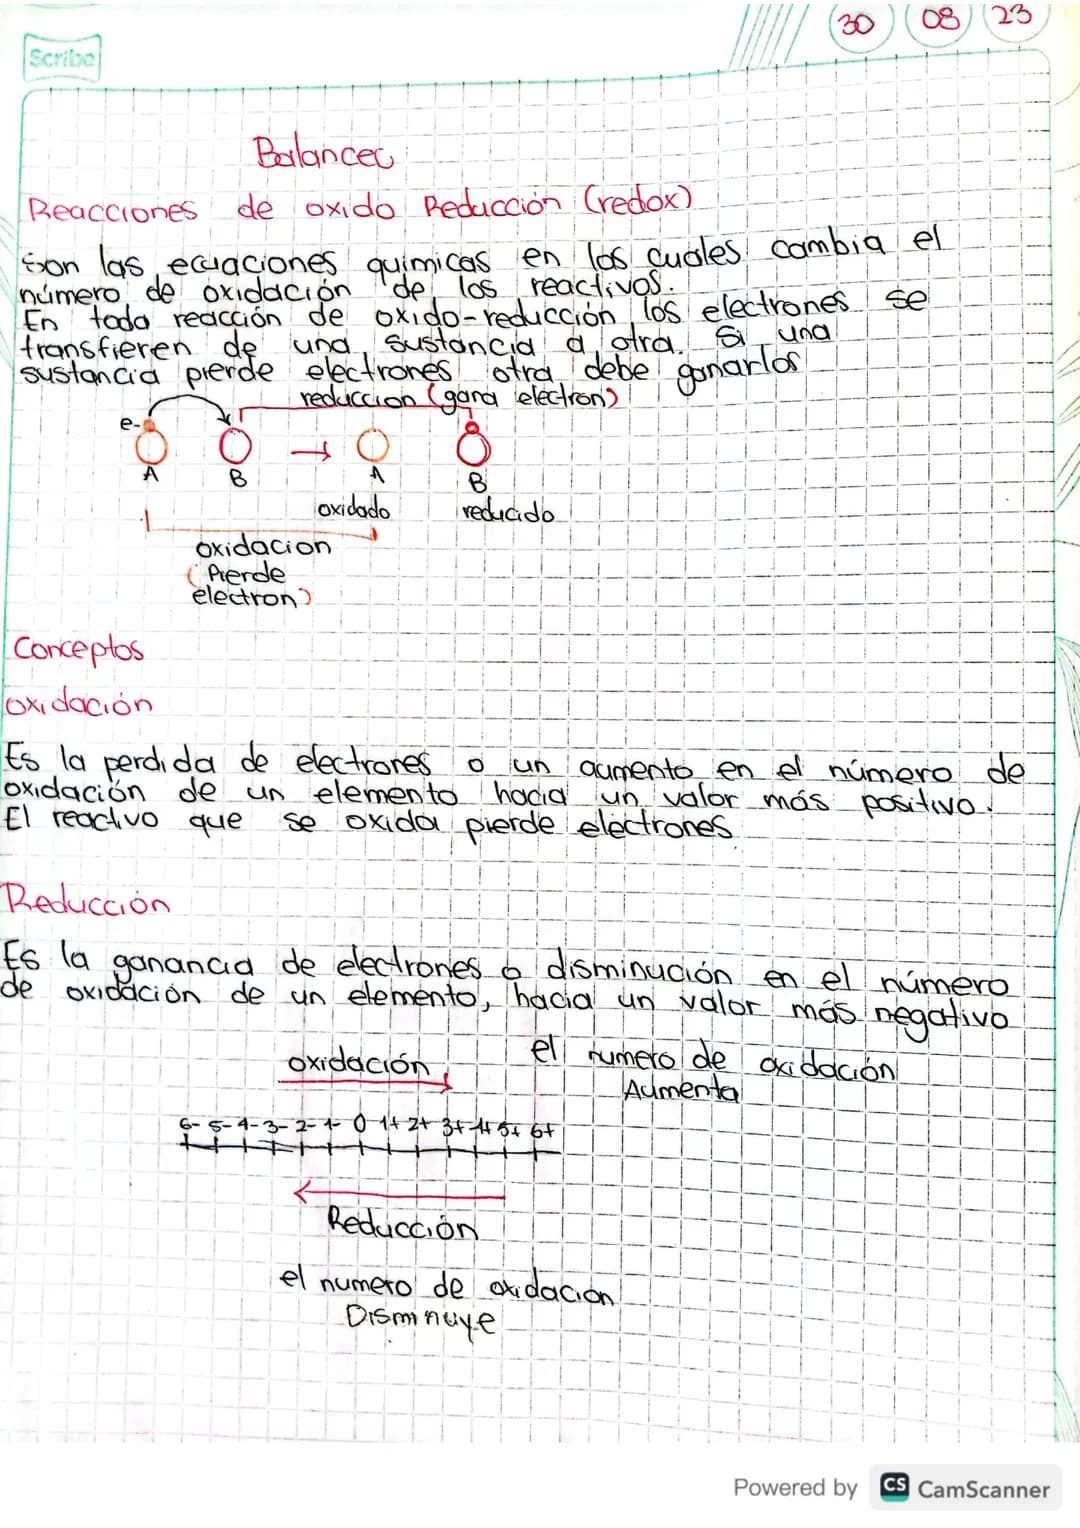 30 08 23
Scribe
Balanceo
Reacciones de oxido Reducción (redox)
son las ecuaciones químicas en las cuales cambia el
número de oxidación de los reactivos.
En toda reacción de oxido-reducción los electrones se
transfieren de una sustancia a otra. Si una
sustancia pierde electrones otra debe ganarlos
reduccion (gana electron)
e-
A B A B
oxidado reducido
oxidacion
(Pierde
electron)
Conceptos
oxidación
Es la perdida de electrones o un aumento en el número de
oxidación de un elemento hacia un valor más positivo.
El reactivo que se oxida pierde electrones
Reducción
Es la ganancia de electrones o disminución en el número
de oxidación de un elemento, hacia un valor más negativo
oxidación
el numero de oxidación
Aumenta
6- 5- 4- 3- 2- 1- 0 1+ 2+ 3+ 4+ 5+ 6+
Reducción
el numero de oxidacion
Disminuye
Powered by CS CamScanner